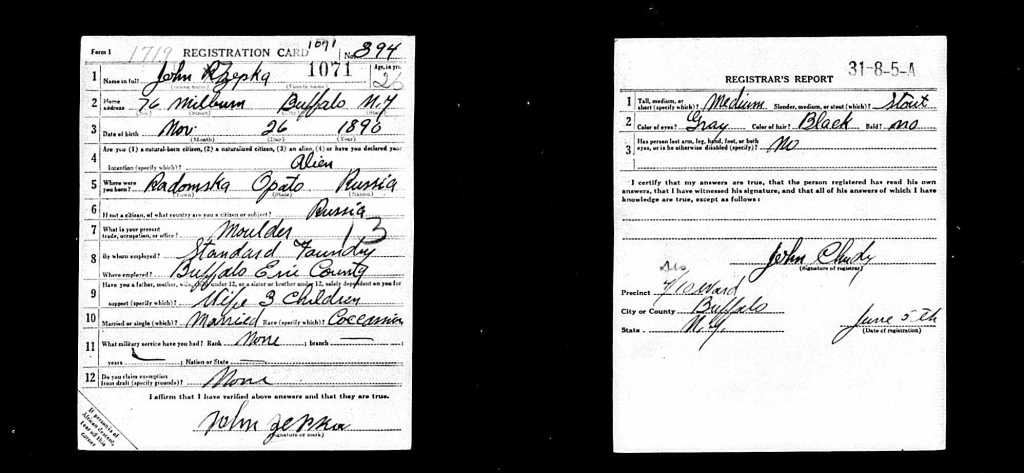 1071
Form 1 1719 REGISTRATION CARD No. 394
1 Name in full John Rzepka 1071 Age, in yrs. 26
(Given name) (Family name)
2 Home address 76 Milburn Buffalo N.Y
3 Date of birth Nov. 26 1896
(Month) (Day) (Year)
4 Are you (1) a natural-born citizen, (2) a naturalized citizen, (3) an alien, (4) or have you declared your
intention (specify which)? Alien
5 Where were you born? Radomska Opato Russia
(Town) (State) (Nation)
6 If not a citizen, of what country are you a citizen or subject? Russia
7 What is your present trade, occupation, or office? Moulder 13
8 By whom employed? Standard Foundry
Where employed? Buffalo Erie County
9 Have you a father, mother, wife, child under 12, or a sister or brother under 12, solely dependent on you for
support (specify which)? Wife 3 Children
10 Married or single (which)? Married Race (specify which)? Coccassion
11 What military service have you had? Rank None ; branch —
years — ; Nation or State —
12 Do you claim exemption from draft (specify grounds)? None
I affirm that I have verified above answers and that they are true.
John Zepka
(Signature or mark)
If person is of African descent, tear off this corner
31-8-5-A
REGISTRAR'S REPORT
1 Tall, medium, or short (specify which)? Medium Slender, medium, or stout (which)? Stout
2 Color of eyes? Gray Color of hair? Black Bald? no
3 Has person lost arm, leg, hand, foot, or both eyes, or is he otherwise disabled (specify)? No
I certify that my answers are true, that the person registered has read his own
answers, that I have witnessed his signature, and that all of his answers of which I have
knowledge are true, except as follows:
John Chudy
(Signature of registrar)
Precinct Ward
City or County Buffalo
State N.Y. June 5th
(Date of registration)